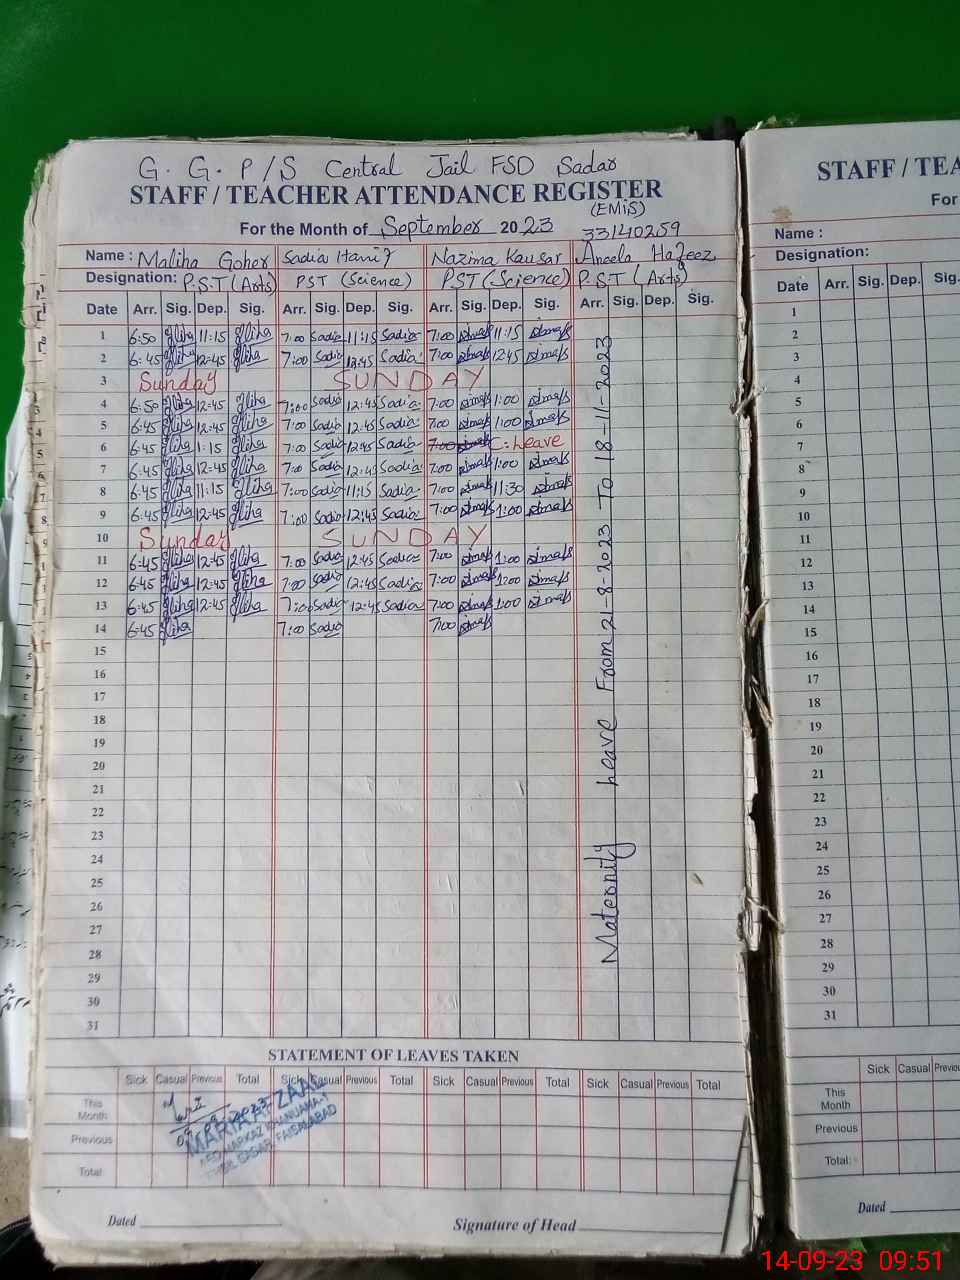 G. G. P/S Central Jail FSD Sadar
STAFF / TEACHER ATTENDANCE REGISTER
(EMiS)
For the Month of September 2023 33140259
Name : Maliha Goher Sadia Hanif Nazima Kausar Aneela Hafeez
Designation: P.S.T (Arts) PST (Science) PST (Science) P.S.T (Arts)
Date Arr. Sig. Dep. Sig. Arr. Sig. Dep. Sig. Arr. Sig. Dep. Sig. Arr. Sig. Dep. Sig.
1 6:50 11:15 7:00 Sadia 11:15 Sadia 7:00 11:15
2 6:45 12:45 7:00 Sadia 12:45 Sadia 7:00 12:45
3 Sunday SUNDAY
4 6:50 12:45 7:00 Sadia 12:45 Sadia 7:00 1:00
5 6:45 12:45 7:00 Sadia 12:45 Sadia 7:00 1:00
6 6:45 1:15 7:00 Sadia 12:45 Sadia 7:00 C. Leave
7 6:45 12:45 7:00 Sadia 12:45 Sadia 7:00 1:00
8 6:45 11:15 7:00 Sadia 11:15 Sadia 7:00 11:30
9 6:45 12:45 7:00 Sadia 12:45 Sadia 7:00 1:00
10 Sunday SUNDAY
11 6:45 12:45 7:00 Sadia 12:45 Sadia 7:00 1:00
12 6:45 12:45 7:00 Sadia 12:45 Sadia 7:00 1:00
13 6:45 12:45 7:00 Sadia 12:45 Sadia 7:00 1:00
14 6:45 7:00 Sadia 7:00
15
16
17
18
19
20
21
22
23
24
25
26
27
28
29
30
31
Maternity Leave From 21-8-2023 To 18-11-2023
STATEMENT OF LEAVES TAKEN
Sick Casual Previous Total Sick Casual Previous Total Sick Casual Previous Total Sick Casual Previous Total
This Month
Previous
Total
MARKAZ
SADAR FAISALABAD
Dated
Signature of Head
STAFF / TEA
For
Name :
Designation:
Date Arr. Sig. Dep. Sig.
1
2
3
4
5
6
7
8
9
10
11
12
13
14
15
16
17
18
19
20
21
22
23
24
25
26
27
28
29
30
31
Sick Casual Previous
This Month
Previous
Total:
Dated
14-09-23 09:51